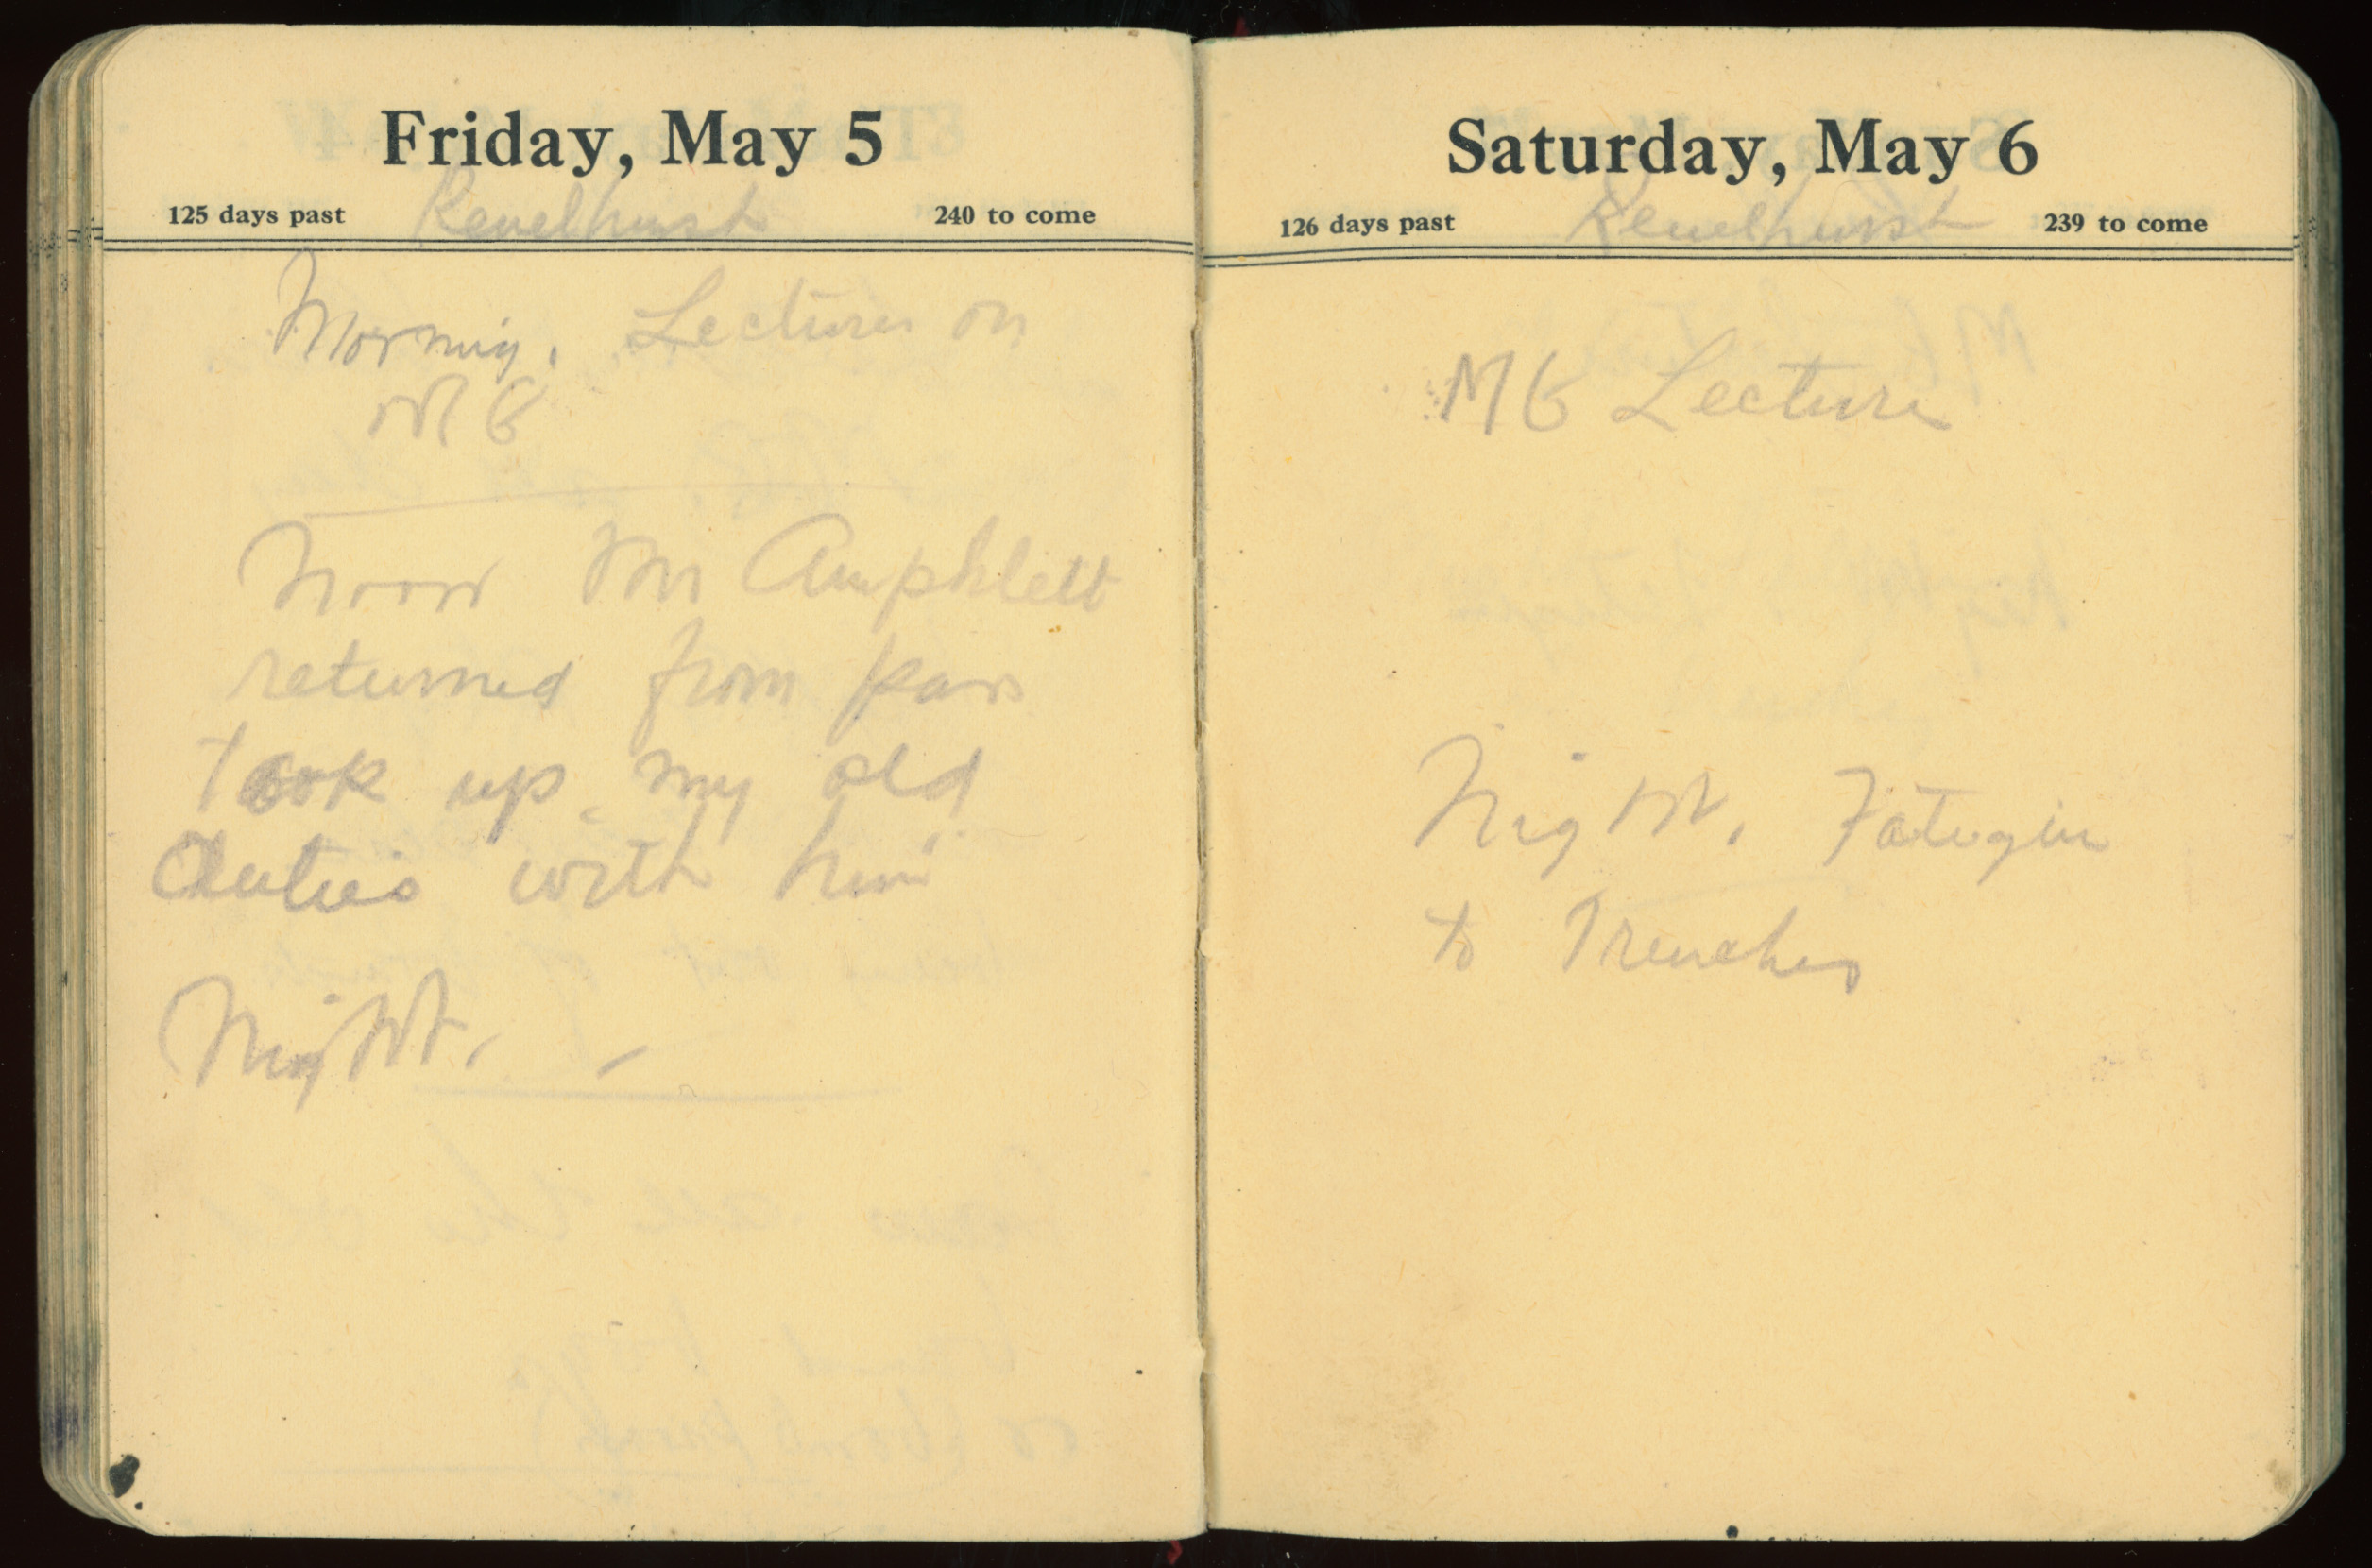 Friday, May 5
125 days past Renelhurst 240 to come
Morning. Lecture on
M G
Noon Mr Amphlett
returned from pass
took up my old
duties with him
Night. –
Saturday, May 6
126 days past Renelhurst 239 to come
M G Lecture
Night. Fatugin
to Trenches